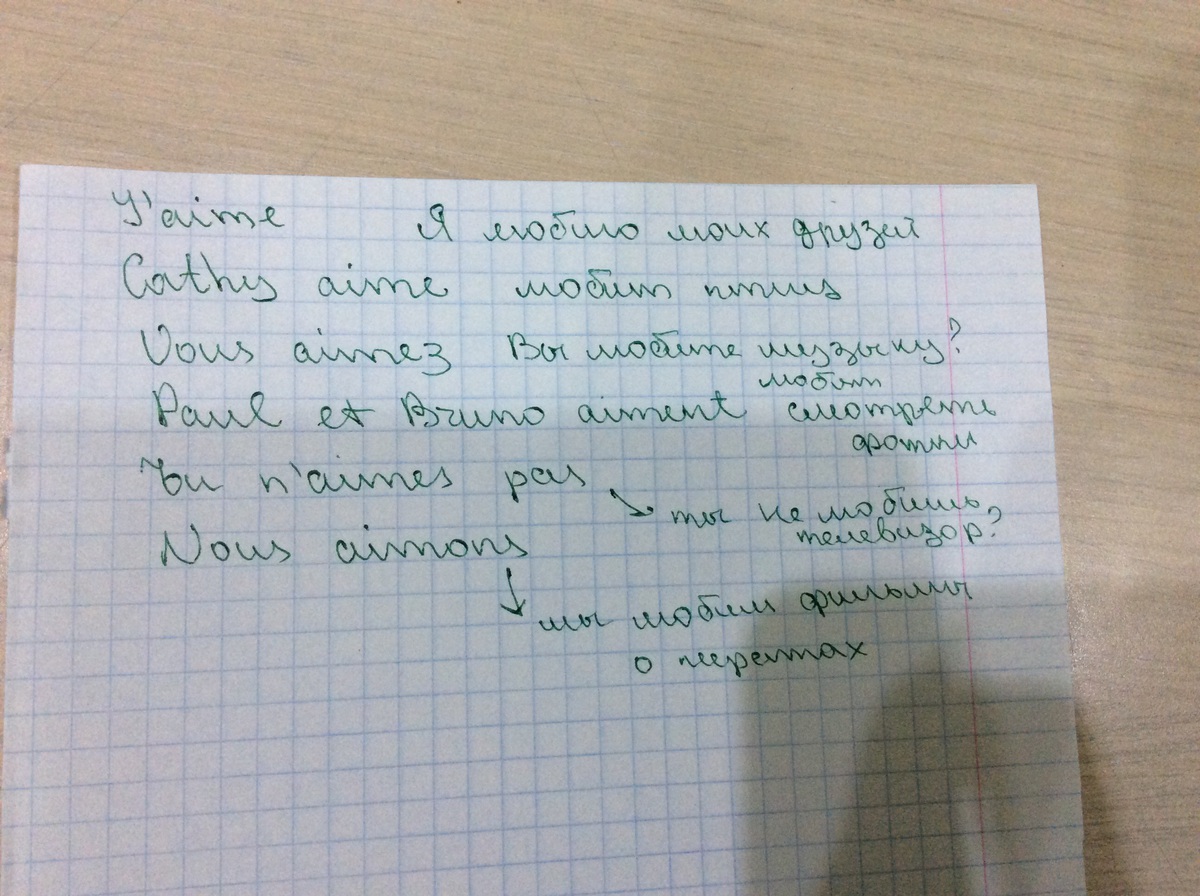 J'aime Я люблю моих друзей
Cathy aime любит птиц
Vous aimez Вы любите музыку?
любят
Paul et Bruno aiment смотреть
фотки
Tu n'aimes pas
ты не любишь
телевизор?
Nous aimons
мы любим фильмы
о пиратах